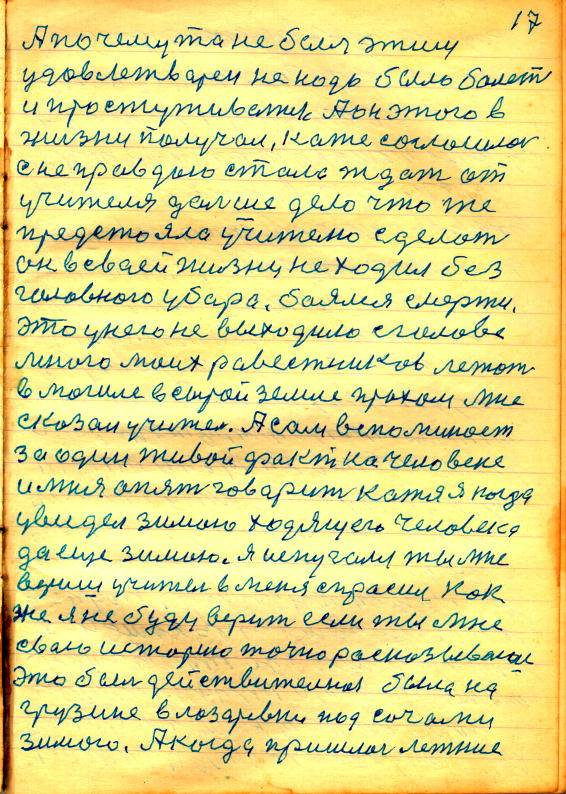 17
А почему та не был этим
удовлетварен не надо было болет
и простуживатся А он этого в
жизни получал, катя согласилас
с не правдою стала ждат от
учителя далше дело что же
предстояла учителю сделат
он в сваей жизни не ходил без
головного убара, баялся смерти,
это у него не выходило с голове
много моих равестников лежат
в могиле в сырой земле прахом мне
сказал учител. А сам вспоминает
за один живой факт на человеке
и мня опят говарит катя я когда
увидел зимою ходящего человека
да еще зимою. я испугаля ты мне
вериш учител в меня спрасил как
же я не буду верит если ты мне
сваю историю точно расказываеш
это был действителная была на
грузине в лазаревки под сочами
зимого. А когда пришлос летние